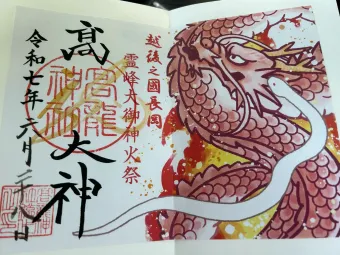 越後之國長岡
霊峰大御神火祭
髙大神
高龍神社
令和七年六月二十八日